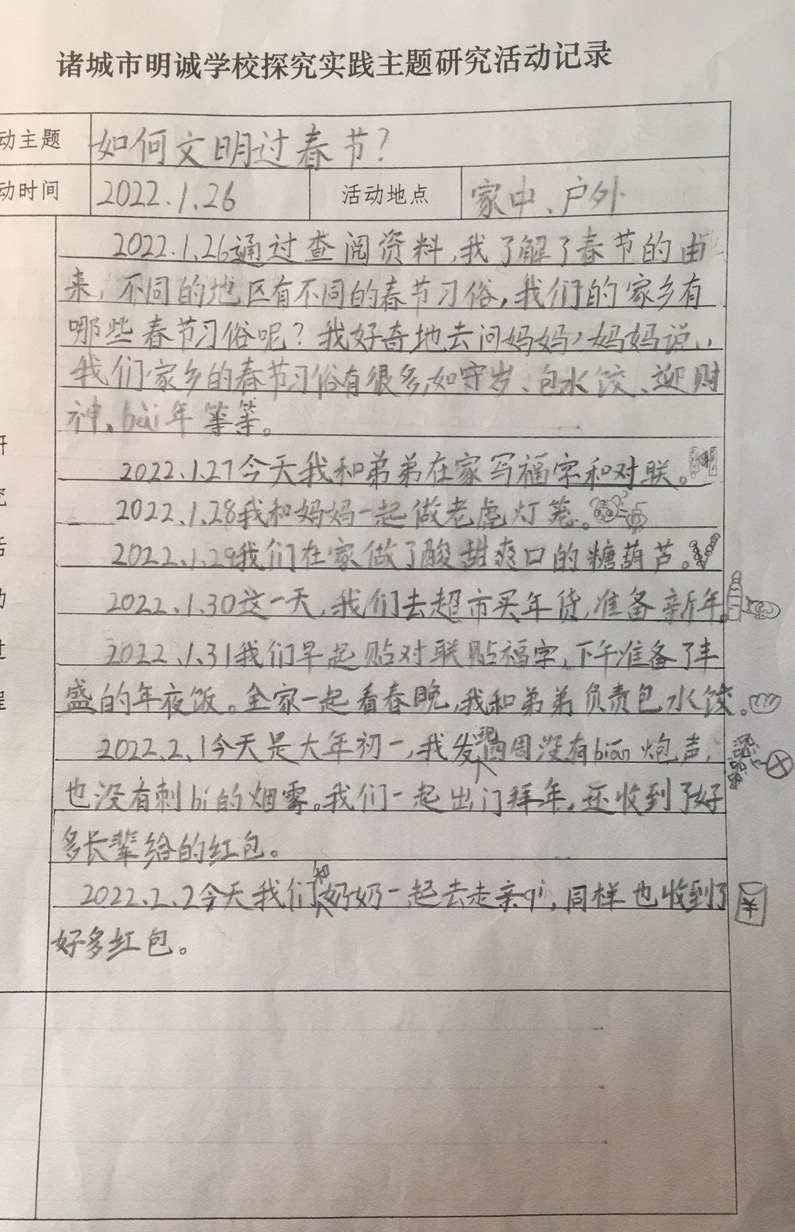 诸城市明诚学校探究实践主题研究活动记录
动主题 如何文明过春节?
动时间 2022.1.26 活动地点 家中、户外
2022.1.26通过查阅资料,我了解了春节的由
来,不同的地区有不同的春节习俗,我们的家乡有
哪些春节习俗呢?我好奇地去问妈妈,妈妈说,
我们家乡的春节习俗有很多,如守岁、包水饺、迎财
神、bài年等等。
2022.1.27今天我和弟弟在家写福字和对联。
2022.1.28我和妈妈一起做老虎灯笼。
2022.1.29我们在家做了酸甜爽口的糖葫芦。
2022.1.30这一天,我们去超市买年货,准备新年。
2022.1.31我们早起贴对联贴福字,下午准备了丰
盛的年夜饭。全家一起看春晚,我和弟弟负责包水饺。
2022.2.1今天是大年初一,我发现四周没有bian炮声,
也没有刺bi的烟雾。我们一起出门拜年,还收到了好
多长辈给的红包。
2022.2.2今天我们和奶奶一起去走亲qi,同样也收到了
好多红包。
研
究
活
动
过
程
¥